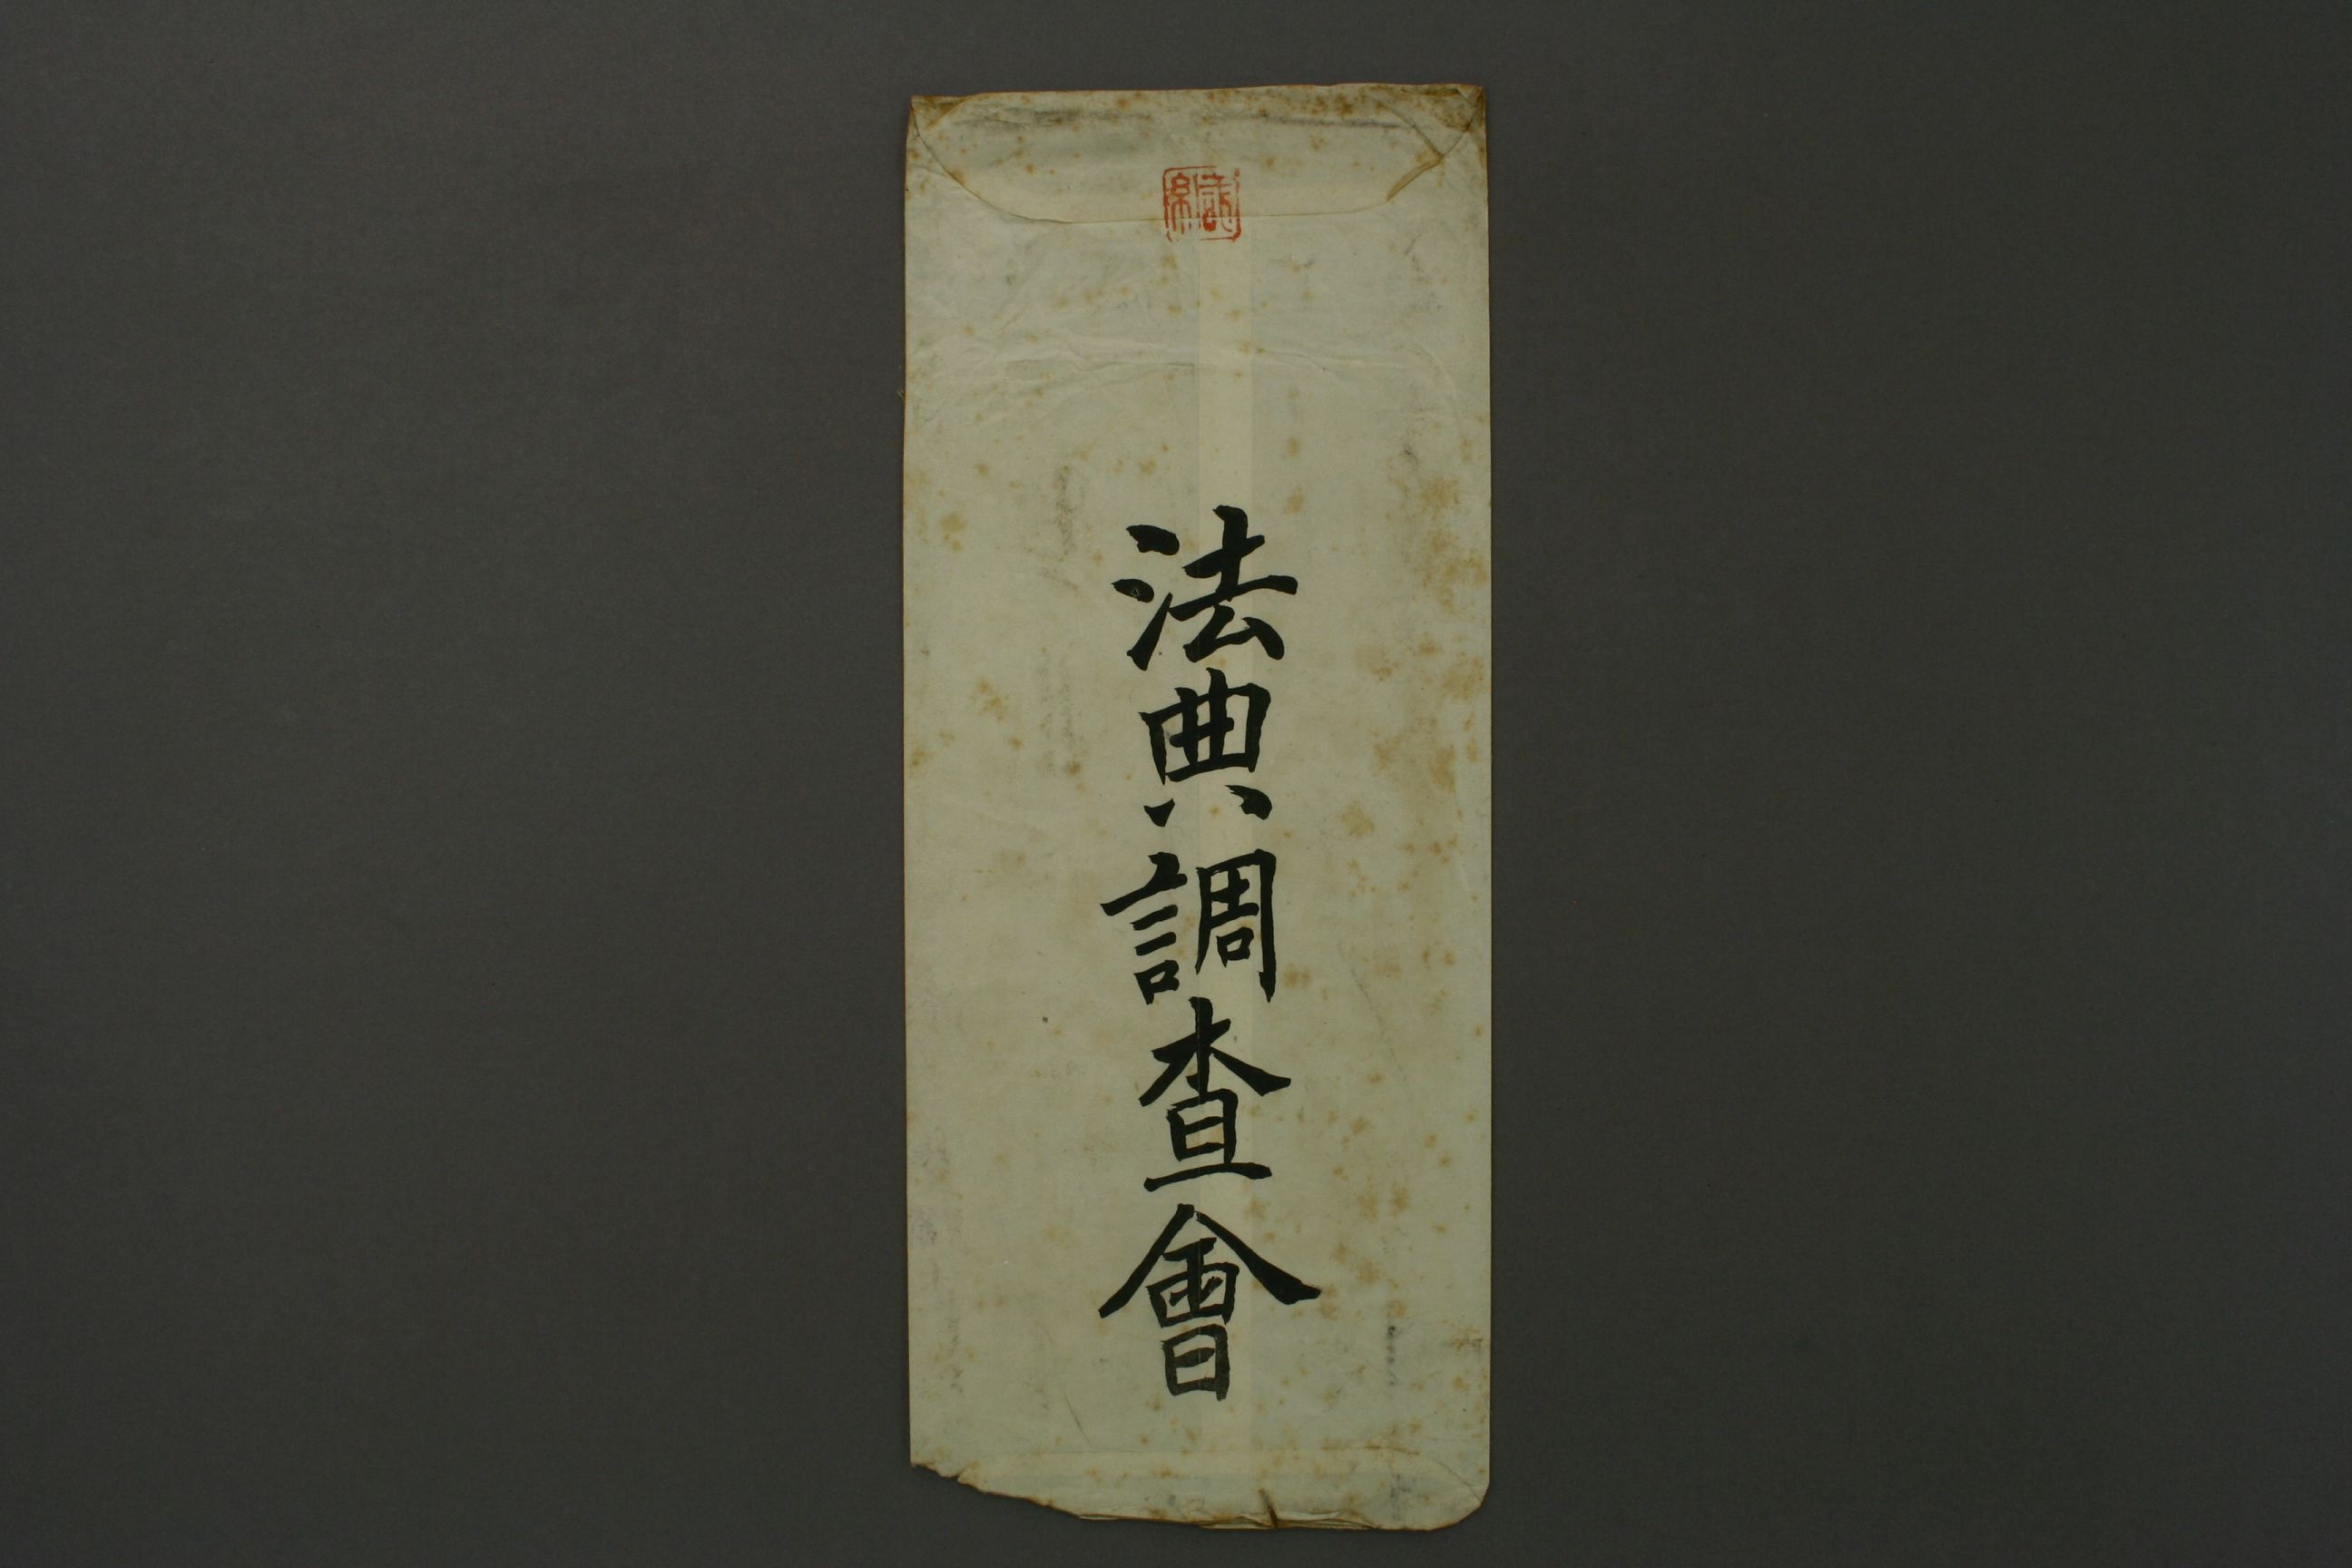 法典調査會